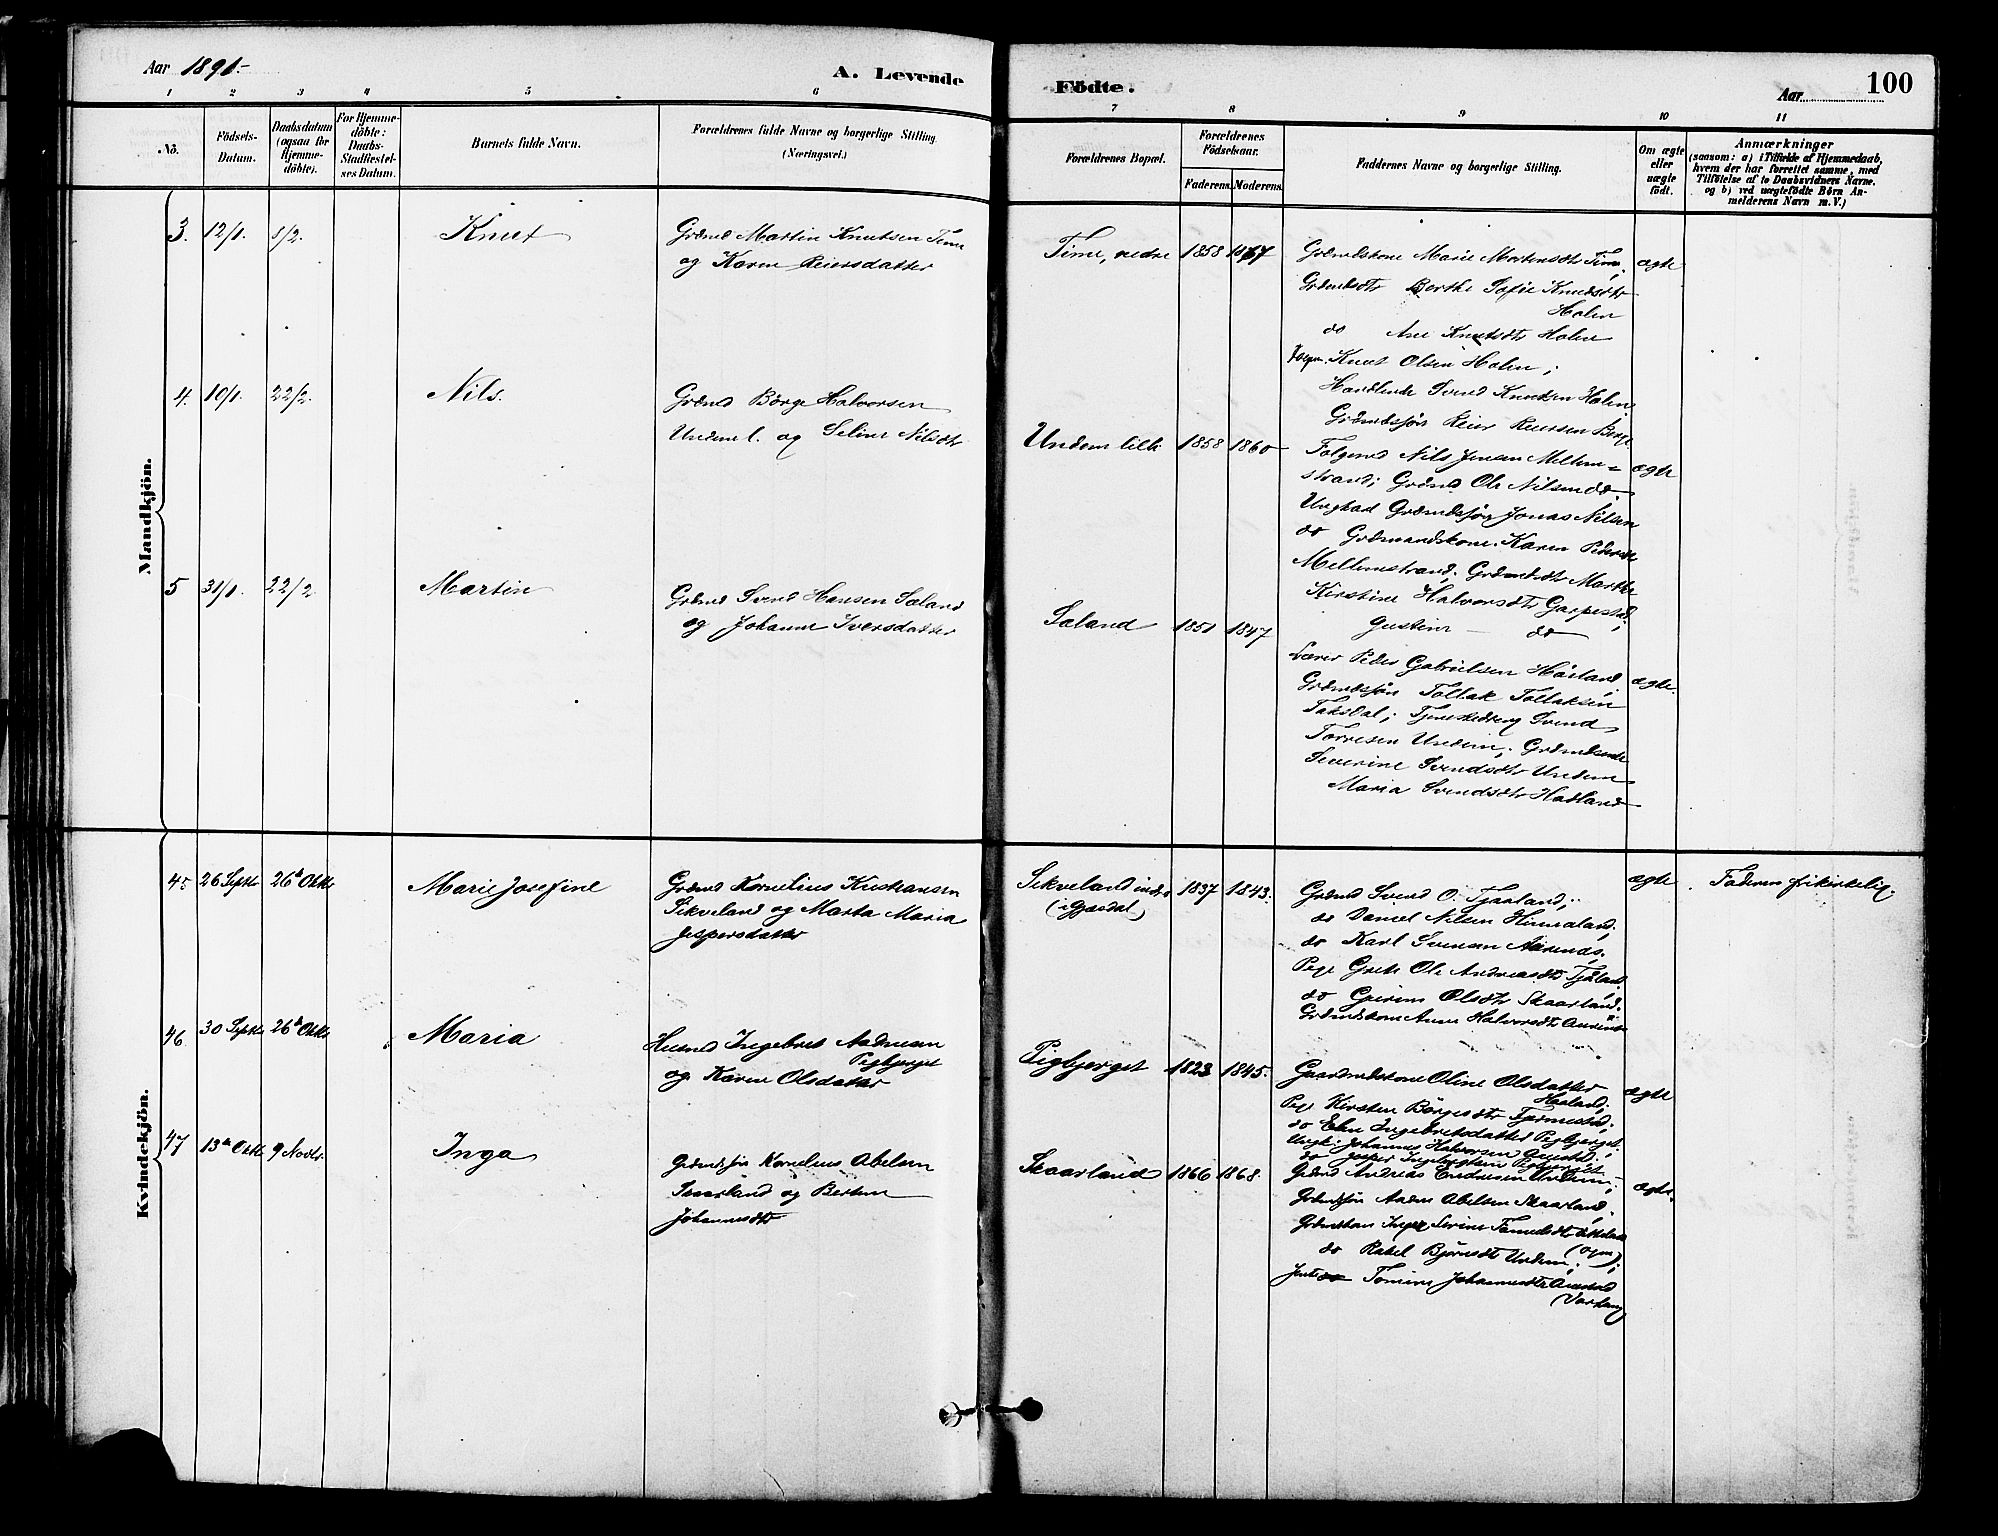 Aar 1891.
A. Levende
Födte.
Aar
100
1 2 3 4 5 6 7 8 9 10 11
No.
Födsels-
Datum.
Daabsdatum
(ogsaa for
Hjemme-
döbte).
For Hjemme-
döbte:
Daabs-
Stadfæstel-
ses Datum.
Barnets fulde Navn.
Forældrenes fulde Navne og borgerlige Stilling.
(Næringsvei.)
Forældrenes Bopæl.
Forældrenes
Födselsaar.
Faderens. Moderens.
Faddernes Navne og borgerlige Stilling.
Om ægte
eller
uægte
födt.
Anmærkninger
(saasom: a) i Tilfælde af Hjemmedaab,
hvem der har forrettet samme, med
Tilföielse af to Daabsvidners Navne.
og b) ved uægtefödte Börn An-
melderens Navn m. V.)
Mandkjön.
3. 12/1. 8/2. Knut
Grdmd Martin Knutsen Time
og Karen Reiersdatter
Time, nedre 1858 1867
Grdmdskone Marie Martensdtr Time.
Grdmdsdtr Berthe Sofie Knudsdtr
Holen
do Ane Knutsdtr Holen
Knut Olsen Holen;
Handlende Svend Knudsen Holen
Grdmdssøn Reier
ægte
4. 10/1. 22/2. Nils.
Grdmd Börge Halvorsen
Undem l. og Seline Nilsdtr
Undem lille 1858 1860
Følgemd Nils Jensen Mellem-
strand; Grdmd Ole Nilsen do.
Ungkad Grdmdssøn Jonas Nilsen
do Grdmandskone. Karen
Mellemstrand; Grdmdsdtr Marthe
Kirstine Halvorsdtr Garpestad;
Gustine — do
ægte
5 31/1. 22/2. Martin
Grdmd Svend Hansen Søland
og Johanne Iversdatter
Søland 1851 1847
Lærer Peder Gabrielsen Høiland
Grdmdssøn Tollak Tollaksen
Taksdal; Tjenestedreng Svend
Torresen Undem; Grdmdsdtr
Severine Svendsdtr Undem
Maria Svendsdtr Hadland
ægte.
Kvindekjön.
45 26 Septbr 26d Oktbr Marie Josefine
Grdmd Kornelius Kristiansen
Sikveland og Marta Maria
Jespersdatter
Sikveland indre
(i Gjesdal)
1837 1843.
Grdmd Svend O. Tjaaland;
do Daniel Nilsen Hinnaland;
do Karl Svensen
Pige Grete Ole Andreasdtr Tjåland
do Gurine Olsdtr Skaarland.
Grdmdskone Anne Halvorsdtr
ægte
Faderen frikirkelig.
46. 30 Septbr 26d Oktbr Maria
Husmd Ingebret Aadnesen
Pigbjerget
og Karen Olsdatter
Pigbjerget 1823 1845.
Gaardmdskone Oline Olsdatter
Haaland;
Pige Kirsten Börgesdtr
do Elen Ingebretsdatter Pigbjerget
Ungk. Johannes Halvorsen
do Jesper Ingebregtsen Pigbjerget
ægte
47 13de Oktbr 9 Novbr. Inga
Grdmdssøn Kornelius Abelsen
Skaarland og Bertine
Johannesdtr
Skaarland 1866 1868.
Grdmd Andreas Endresen Undem;
Grdmdssøn Andres Abelsen Skaarland,
Grdmdskone Inger Serine
do Rakel Bjørnsdtr Undem;
Jente Tomine Johannesdtr
(Varhaug
ægte.